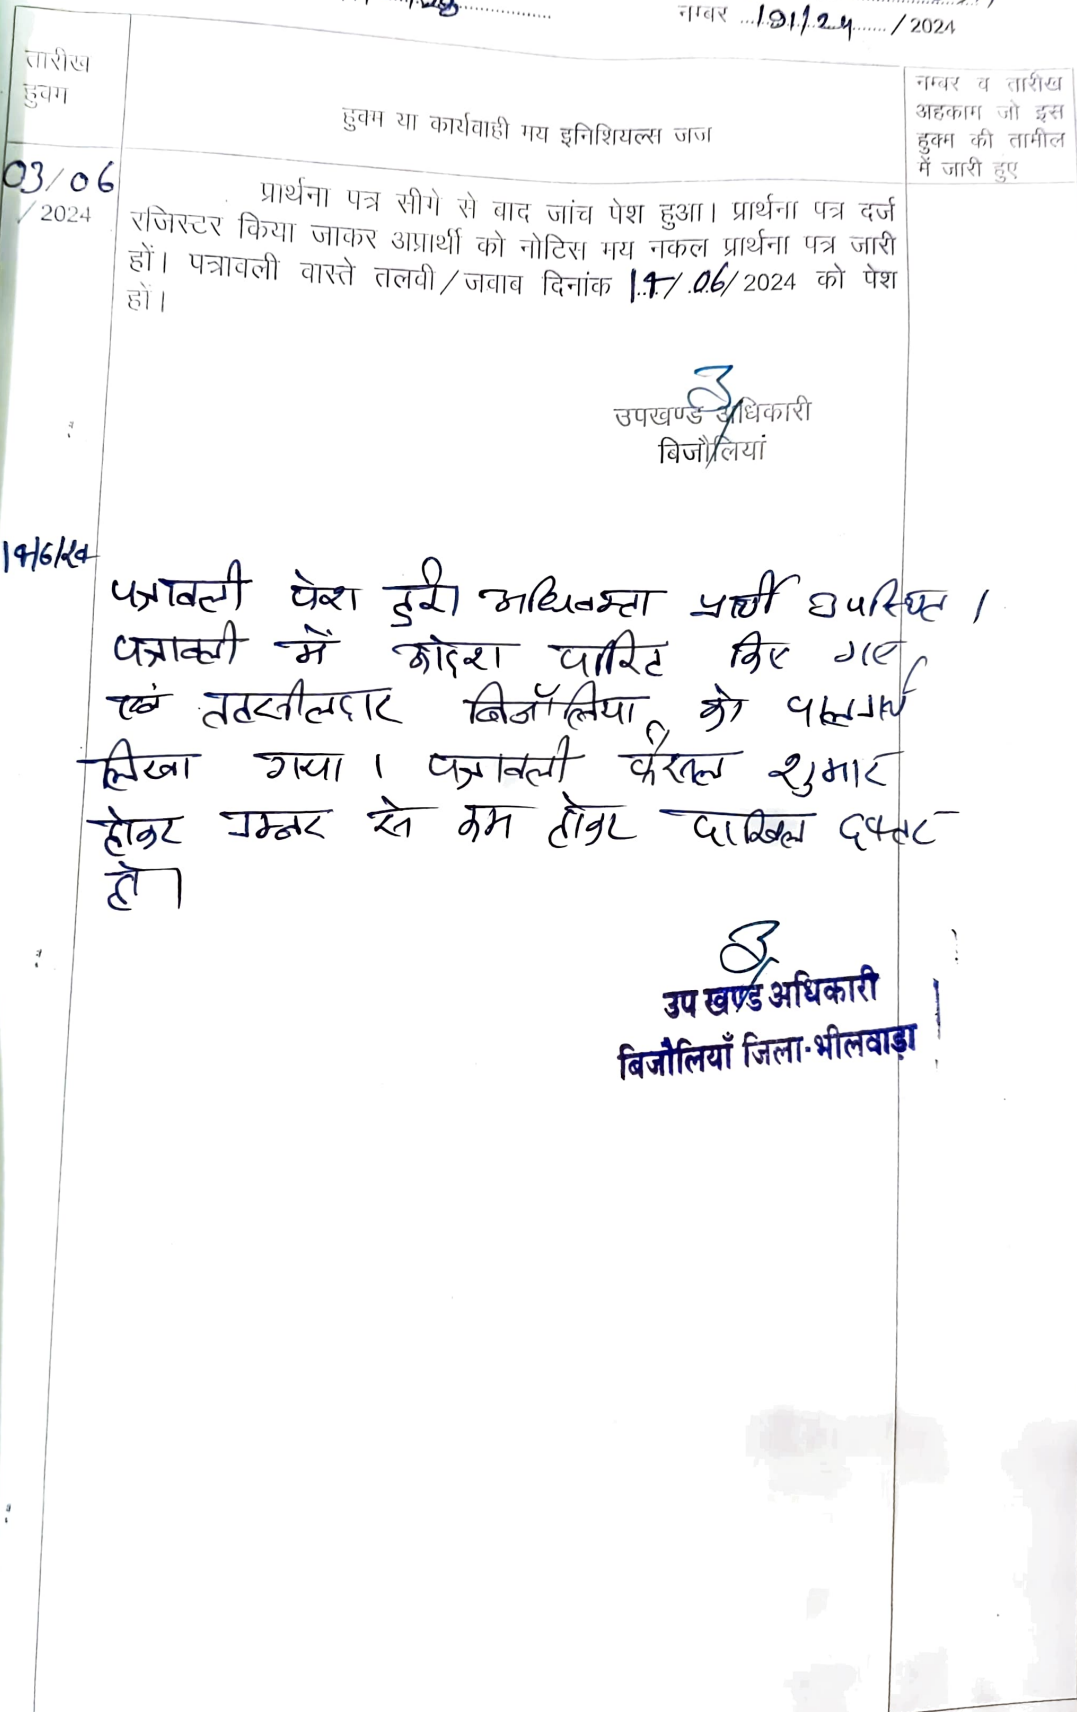 नम्बर ...191/24....... / 2024
तारीख
हुक्म
हुक्म या कार्यवाही मय इनिशियल्स जज
नम्बर व तारीख
अहकाम जो इस
हुक्म की तामील
में जारी हुए
03/06
/2024
प्रार्थना पत्र सीगे से बाद जांच पेश हुआ। प्रार्थना पत्र दर्ज
रजिस्टर किया जाकर अप्रार्थी को नोटिस मय नकल प्रार्थना पत्र जारी
हों। पत्रावली वास्ते तलवी/जवाब दिनांक /06/2024 को पेश
हों।
उपखण्ड अधिकारी
बिजौलियां
पत्रावली पेश हुई। अधिवक्ता प्रार्थी उपस्थित।
पत्रावली में आदेश पारित किए गए
एवं तहसीलदार बिजौलिया को पालनार्थ
लिखा गया। पत्रावली फैसल शुमार
होकर नम्बर से कम होकर दाखिल दफ्तर
हो।
उप खण्ड अधिकारी
बिजौलियाँ जिला-भीलवाड़ा